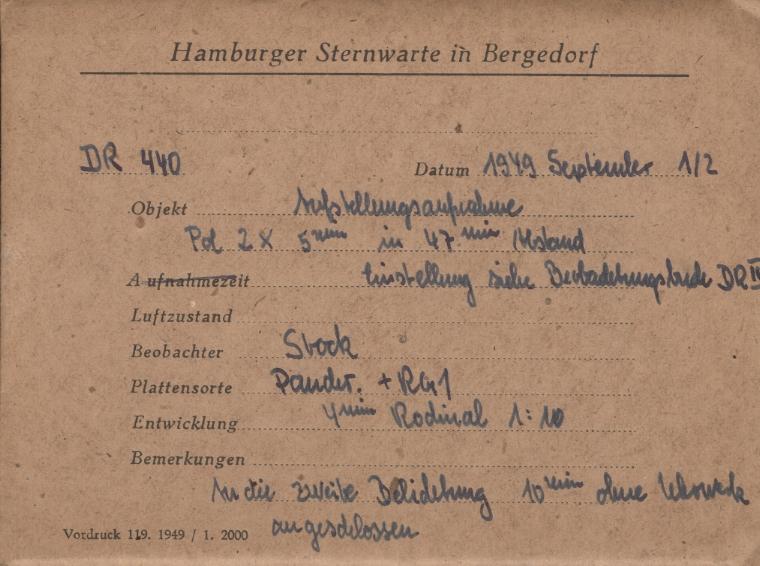 Hamburger Sternwarte in Bergedorf
DR 440 Datum 1949 September 1/2
Objekt Aufstellungsaufnahme
Pol 2 x 5 min in 47 min Abstand
Aufnahmezeit Einstellung siehe Beobachtungsbuch DR IV
Luftzustand
Beobachter Stock
Plattensorte Panchr. + RG1
Entwicklung 4 min Rodinal 1:10
Bemerkungen
An die zweite Belichtung 10 min ohne Uhrwerk
angeschlossen
Vordruck 119. 1949 / 1. 2000